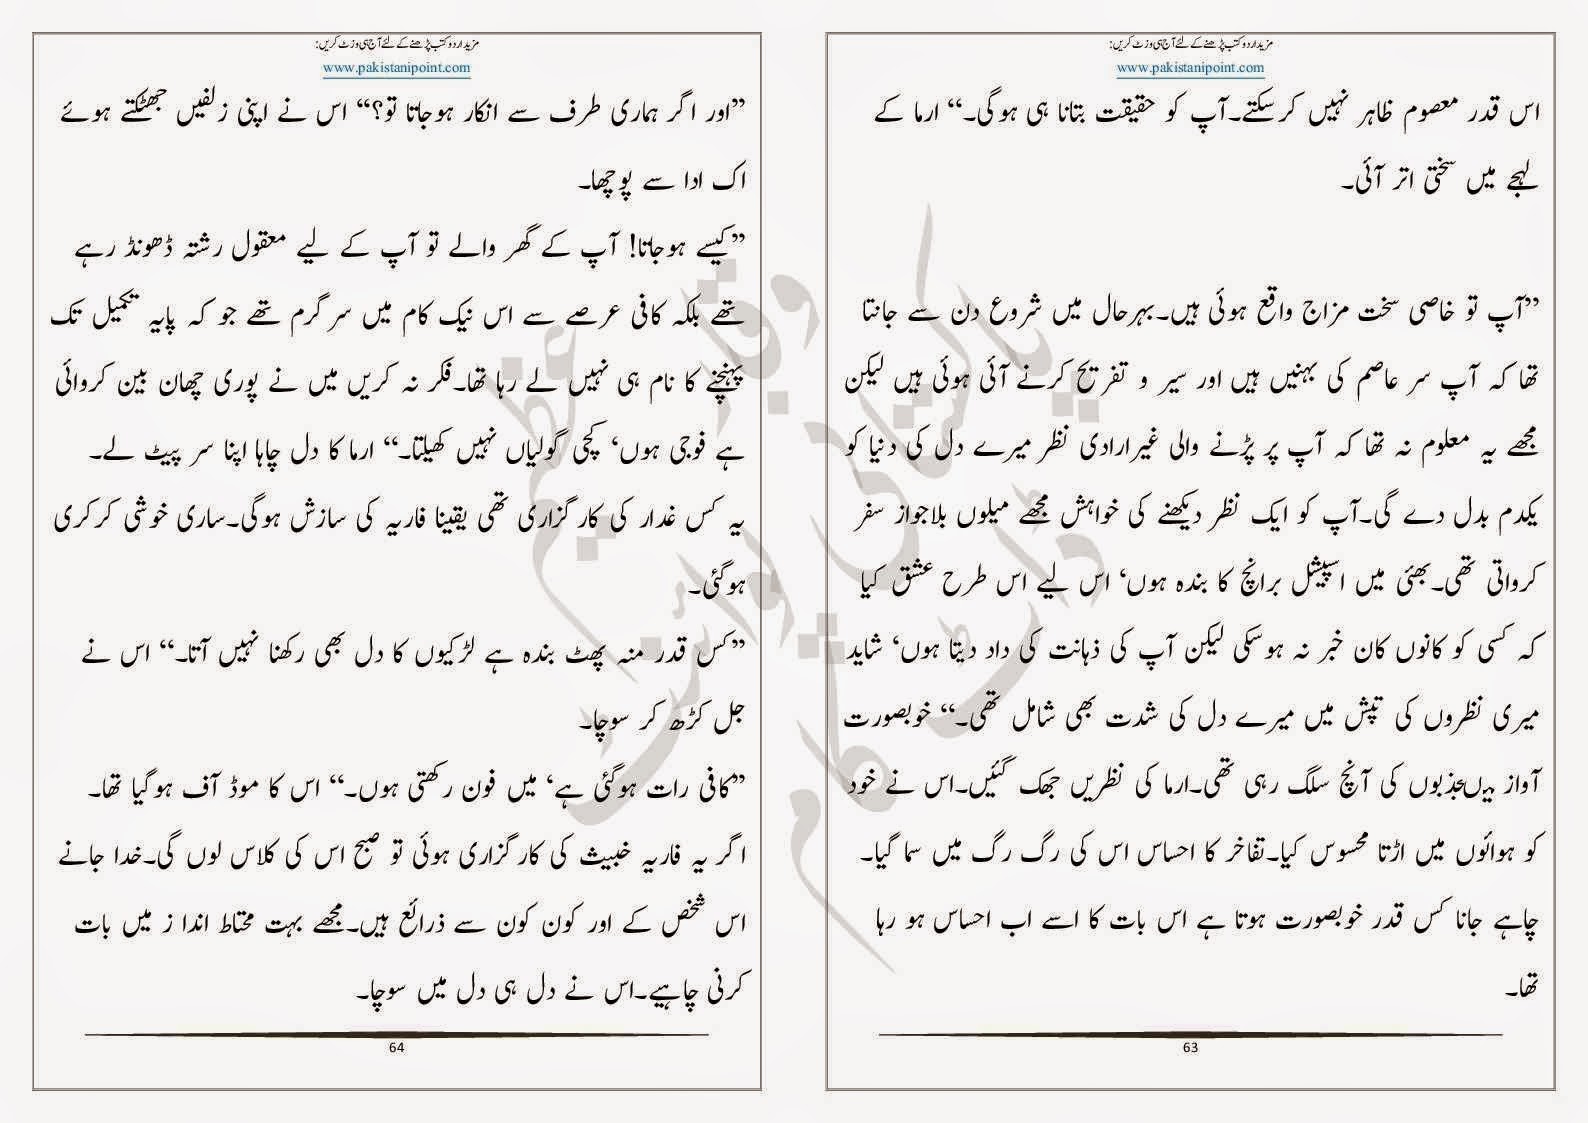 مزید اردو کتب پڑھنے کے لئے آج ہی وزٹ کریں:
www.pakistanipoint.com
اس قدر معصوم ظاہر نہیں کرسکتے۔آپ کو حقیقت بتانا ہی ہوگی۔“ ارما کے
لہجے میں سختی اتر آئی۔
”آپ تو خاصی سخت مزاج واقع ہوئی ہیں۔بہرحال میں شروع دن سے جانتا
تھا کہ آپ سر عاصم کی بہنیں ہیں اور سیر و تفریح کرنے آئی ہوئی ہیں لیکن
مجھے یہ معلوم نہ تھا کہ آپ پر پڑنے والی غیرارادی نظر میرے دل کی دنیا کو
یکدم بدل دے گی۔آپ کو ایک نظر دیکھنے کی خواہش مجھے میلوں بلاجواز سفر
کرواتی تھی۔بھئی میں اسپیشل برانچ کا بندہ ہوں‘ اس لیے اس طرح عشق کیا
کہ کسی کو کانوں کان خبر نہ ہوسکی لیکن آپ کی ذہانت کی داد دیتا ہوں‘ شاید
میری نظروں کی تپش میں میرے دل کی شدت بھی شامل تھی۔“ خوبصورت
آواز میںجذبوں کی آنچ سلگ رہی تھی۔ارما کی نظریں جھک گئیں۔اس نے خود
کو ہوائوں میں اڑتا محسوس کیا۔تفاخر کا احساس اس کی رگ رگ میں سما گیا۔
چاہے جانا کس قدر خوبصورت ہوتا ہے اس بات کا اسے اب احساس ہو رہا
تھا۔
63
مزید اردو کتب پڑھنے کے لئے آج ہی وزٹ کریں:
www.pakistanipoint.com
”اور اگر ہماری طرف سے انکار ہوجاتا تو؟“ اس نے اپنی زلفیں جھٹکتے ہوئے
اک ادا سے پوچھا۔
”کیسے ہوجاتا! آپ کے گھر والے تو آپ کے لیے معقول رشتہ ڈھونڈ رہے
تھے بلکہ کافی عرصے سے اس نیک کام میں سرگرم تھے جو کہ پایہ تکمیل تک
پہنچنے کا نام ہی نہیں لے رہا تھا۔فکر نہ کریں میں نے پوری چھان بین کروائی
ہے فوجی ہوں‘ کچی گولیاں نہیں کھیلتا۔“ ارما کا دل چاہا اپنا سر پیٹ لے۔
یہ کس غدار کی کارگزاری تھی یقینا فاریہ کی سازش ہوگی۔ساری خوشی کرکری
ہوگئی۔
”کس قدر منہ پھٹ بندہ ہے لڑکیوں کا دل بھی رکھنا نہیں آتا۔“ اس نے
جل کڑھ کر سوچا۔
”کافی رات ہوگئی ہے‘ میں فون رکھتی ہوں۔“ اس کا موڈ آف ہوگیا تھا۔
اگر یہ فاریہ خبیث کی کارگزاری ہوئی تو صبح اس کی کلاس لوں گی۔خدا جانے
اس شخص کے اور کون کون سے ذرائع ہیں۔مجھے بہت محتاط اندا ز میں بات
کرنی چاہیے۔اس نے دل ہی دل میں سوچا۔
64
وقار عظیم
پاکستانی پوائنٹ
ڈاٹ کام